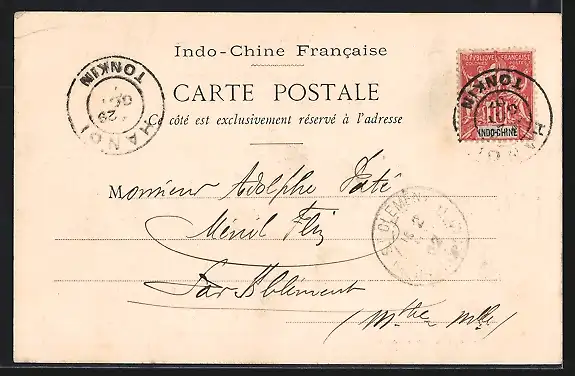 Indo-Chine Française
CARTE POSTALE
Ce côté est exclusivement réservé à l'adresse
HANOI
TONKIN
29
RÉPUBLIQUE FRANÇAISE
COLONIES POSTES
10
INDO-CHINE
HANOI
TONKIN
Monsieur Adolphe
Ménil Flin
Par St Clément
(Mthe Mlle)
ST CLEMENT